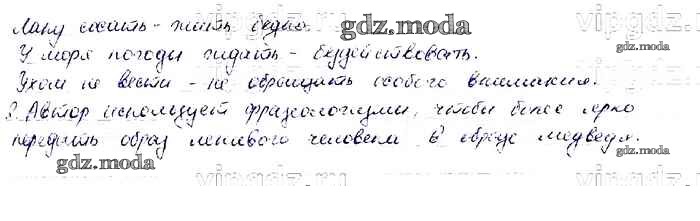 Лапу сосать - жить бедно.
У моря погоды ждать - бездействовать.
Ухом не вести - не обращать особого внимания.
3. Автор использует фразеологизмы, чтобы более ярко
передать образ ленивого человека в образе медведя.
gdz.moda
gdz.moda
gdz.moda
gdz.moda
gdz.moda